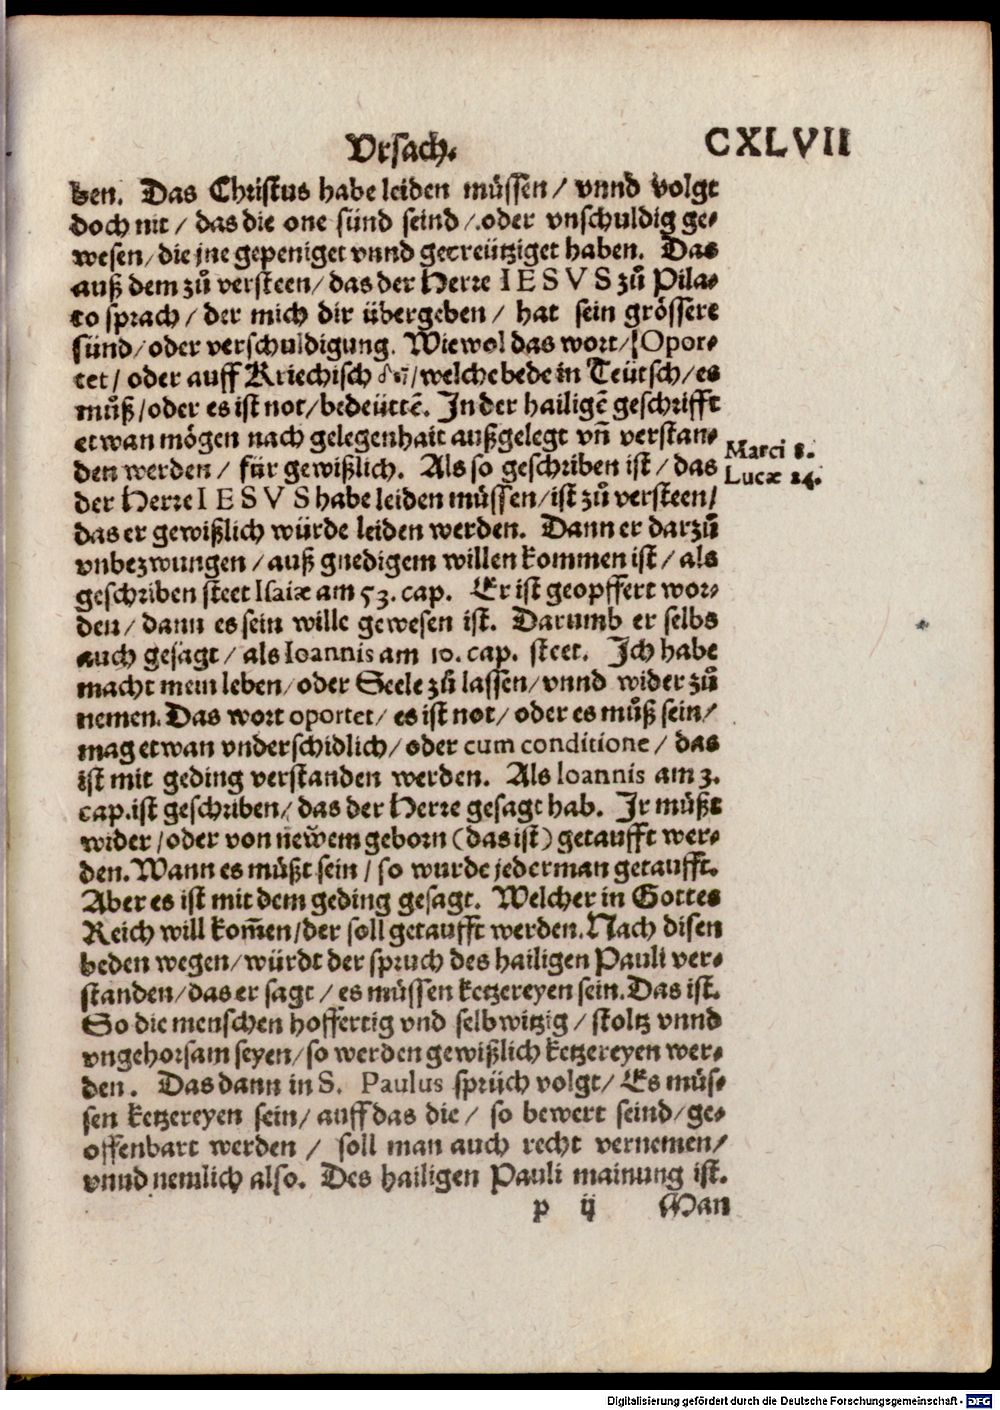 Vrsach.
CXLVII
ben. Das Christus habe leiden müssen / vnnd volgt
doch nit / das die one sünd seind / oder vnschuldig ge-
wesen / die jne gepeniget vnnd gecreütziget haben. Das
auß dem zů versteen / das der Herre IESVS zů Pila-
to sprach / der mich dir übergeben / hat sein grössere
sünd / oder verschuldigung. Wiewol das wort / Opor-
tet / oder auff Kriechisch δεῖ / welche bede in Teütsch / es
můß / oder es ist not / bedeüttē. In der hailigē geschrifft
etwan mögen nach gelegenhait außgelegt vñ verstan-
den werden / für gewißlich. Als so geschriben ist / das
Marci 8.
Lucæ 24.
der Herre IESVS habe leiden müssen / ist zů versteen /
das er gewißlich würde leiden werden. Dann er darzů
vnbezwungen / auß gnedigem willen kommen ist / als
geschriben steet Isaiæ am 53. cap. Er ist geopffert wor-
den / dann es sein wille gewesen ist. Darumb er selbs
auch gesagt / als Ioannis am 10. cap. steet. Ich habe
macht mein leben / oder Seele zů lassen / vnnd wider zů
nemen. Das wort oportet / es ist not / oder es můß sein /
mag etwan vnderschidlich / oder cum conditione / das
ist mit geding verstanden werden. Als Ioannis am 3.
cap. ist geschriben / das der Herre gesagt hab. Ir müßt
wider / oder von newem geborn (das ist) getaufft wer-
den. Wann es müßt sein / so wurde jederman getaufft.
Aber es ist mit dem geding gesagt. Welcher in Gottes
Reich will kom̄en / der soll getaufft werden. Nach disen
beden wegen / würdt der spruch des hailigen Pauli ver-
standen / das er sagt / es müssen ketzereyen sein. Das ist.
So die menschen hoffertig vnd selbwitzig / stoltz vnnd
vngehorsam seyen / so werden gewißlich ketzereyen wer-
den. Das dann in S. Paulus sprüch volgt / Es müs-
sen ketzereyen sein / auff das die / so bewert seind / ge-
offenbart werden / soll man auch recht vernemen /
vnnd nemlich also. Des hailigen Pauli mainung ist.
p ij
Man
Digitalisierung gefördert durch die Deutsche Forschungsgemeinschaft - DFG